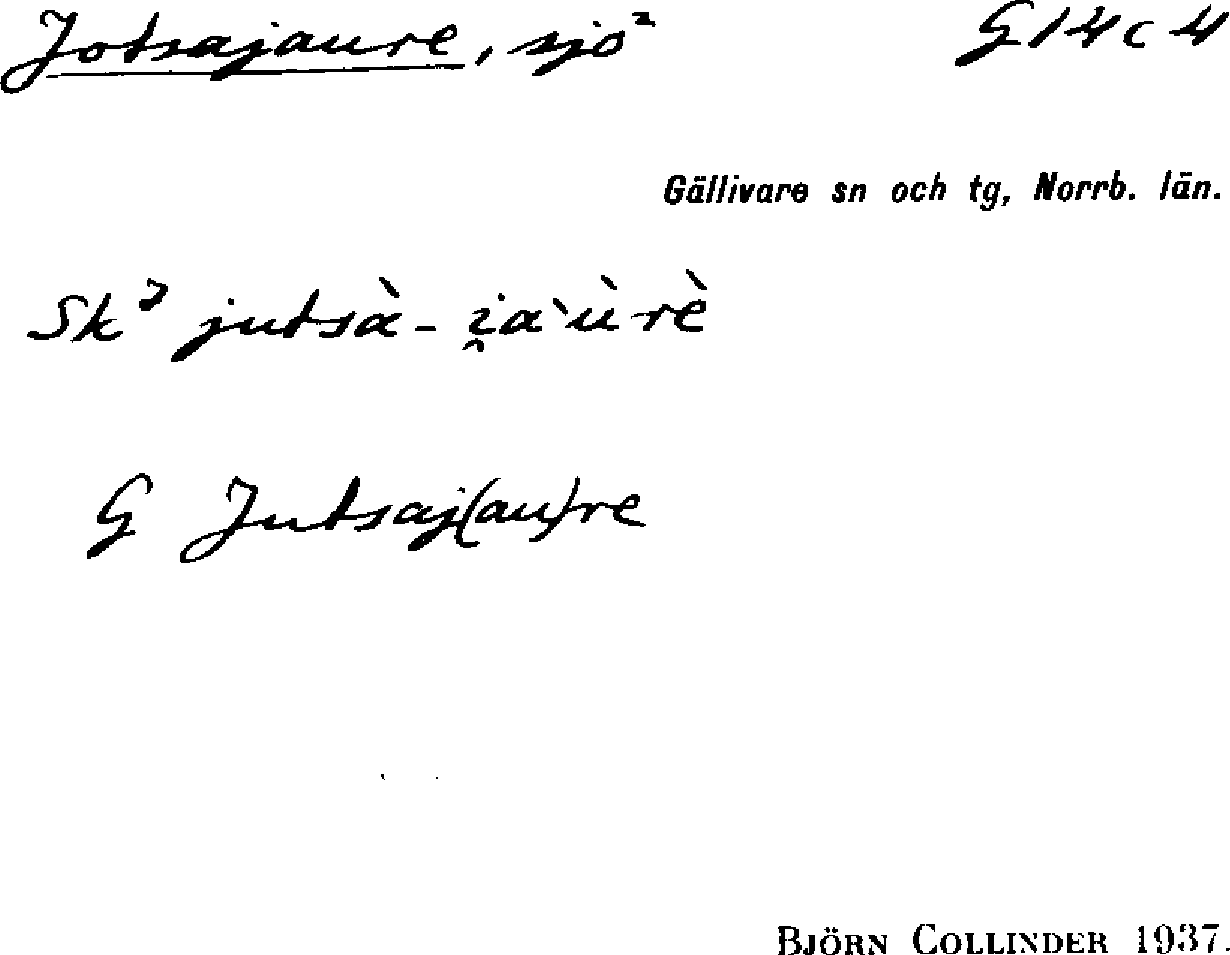 Jotsajaure, sjö² G 14 c 4
Gällivare sn och tg, Norrb. län.
Sk³ jutsà - i̯a`ùrè
G Jutsaj(au)re
BJÖRN COLLINDER 1937.